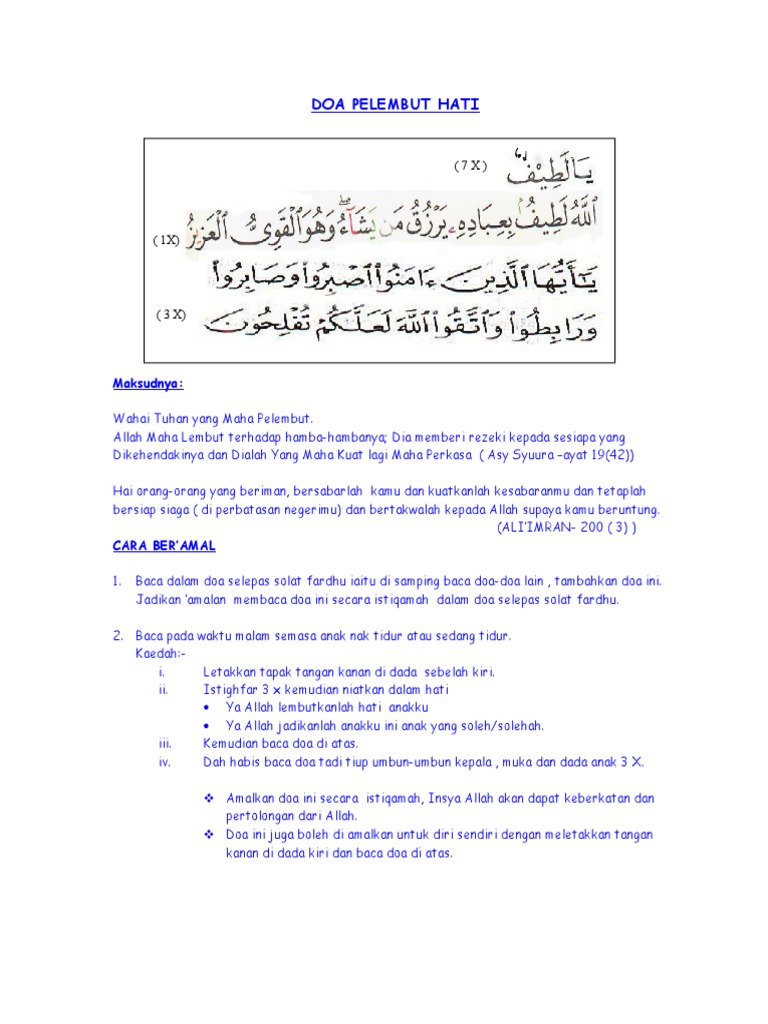 DOA PELEMBUT HATI
يَالَطِيْفُ (7 X)
ٱللَّهُ لَطِيفُۢ بِعِبَادِهِۦ يَرْزُقُ مَن يَشَآءُۖ وَهُوَ ٱلْقَوِىُّ ٱلْعَزِيزُ (1X)
يَـٰٓأَيُّهَا ٱلَّذِينَ ءَامَنُوا۟ ٱصْبِرُوا۟ وَصَابِرُوا۟
وَرَابِطُوا۟ وَٱتَّقُوا۟ ٱللَّهَ لَعَلَّكُمْ تُفْلِحُونَ (3 X)
Maksudnya:
Wahai Tuhan yang Maha Pelembut.
Allah Maha Lembut terhadap hamba-hambanya; Dia memberi rezeki kepada sesiapa yang
Dikehendakinya dan Dialah Yang Maha Kuat lagi Maha Perkasa ( Asy Syuura –ayat 19(42))
Hai orang-orang yang beriman, bersabarlah kamu dan kuatkanlah kesabaranmu dan tetaplah
bersiap siaga ( di perbatasan negerimu) dan bertakwalah kepada Allah supaya kamu beruntung.
(ALI’IMRAN- 200 ( 3) )
CARA BER’AMAL
1. Baca dalam doa selepas solat fardhu iaitu di samping baca doa-doa lain , tambahkan doa ini.
Jadikan ‘amalan membaca doa ini secara istiqamah dalam doa selepas solat fardhu.
2. Baca pada waktu malam semasa anak nak tidur atau sedang tidur.
Kaedah:-
i. Letakkan tapak tangan kanan di dada sebelah kiri.
ii. Istighfar 3 x kemudian niatkan dalam hati
• Ya Allah lembutkanlah hati anakku
• Ya Allah jadikanlah anakku ini anak yang soleh/solehah.
iii. Kemudian baca doa di atas.
iv. Dah habis baca doa tadi tiup umbun-umbun kepala , muka dan dada anak 3 X.
❖ Amalkan doa ini secara istiqamah, Insya Allah akan dapat keberkatan dan
pertolongan dari Allah.
❖ Doa ini juga boleh di amalkan untuk diri sendiri dengan meletakkan tangan
kanan di dada kiri dan baca doa di atas.